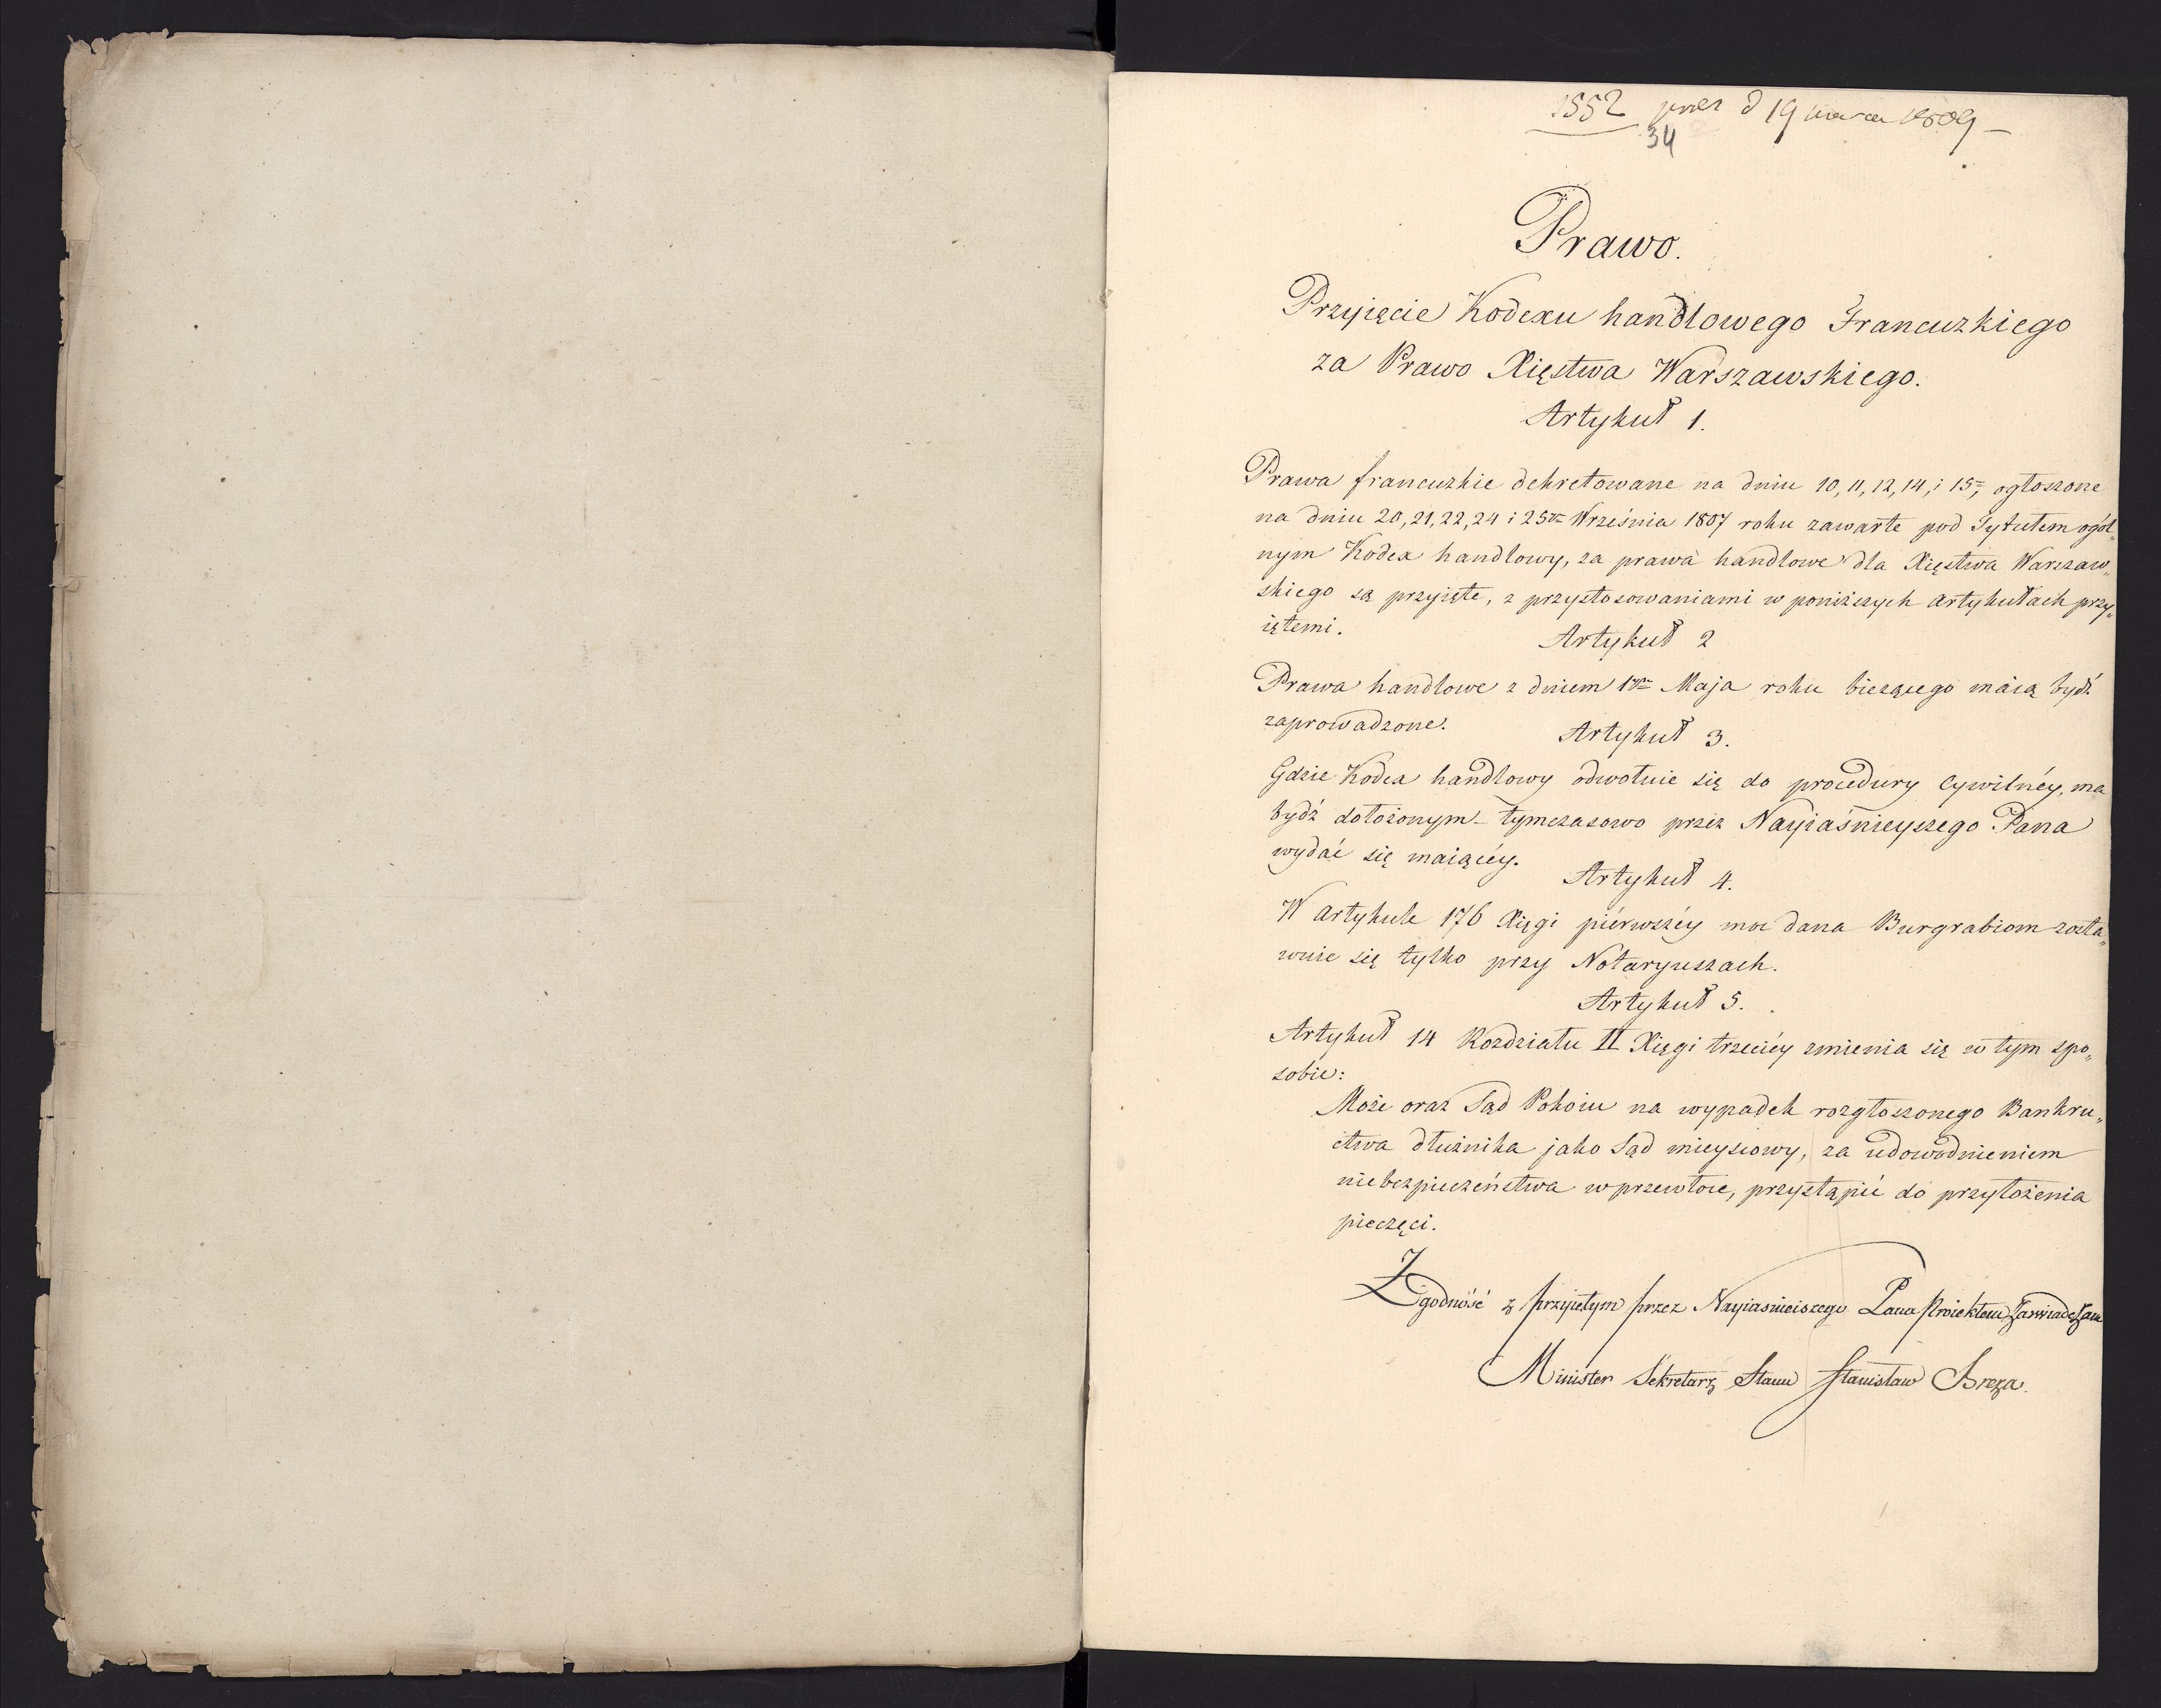 1552 prez d 19 marca 1809 –
34
Prawo.
Przyięcie Kodexu handlowego Francuzkiego
za Prawo Xięstwa Warszawskiego.
Artykuł 1.
Prawa francuzkie dekretowane na dniu 10, 11, 12, 14, i 15, ogłoszone
na dniu 20, 21, 22, 24 i 25go Września 1807 roku zawarte pod Tytułem ogól„
nym Kodex handlowy, za prawa handlowe dla Xięstwa Warszaw„
skiego są przyięte, z przystosowaniami w poniższych artykułach przy„
iętemi.
Artykuł 2
Prawa handlowe z dniem 1ym Maja roku bieżącego maią bydź
zaprowadzone.
Artykuł 3.
Gdzie Kodex handlowy odwołuie się do procedury Cywilnéy, ma
bydź dołożonym – tymczasowo przez Nayiaśnieyszego Pana
wydać się maiącéy.
Artykuł 4.
W Artykule 176 Xięgi piérwszéy moc dana Burgrabiom zosta„
wuie się tylko przy Notaryuszach.
Artykuł 5.
Artykuł 14 Rozdziału II Xięgi trzeciéy zmienia się w tym spo„
sobie:
Może oraz Sąd Pokoiu na wypadek rozgłoszonego Bankru„
ctwa dłużnika jako Sąd mieyscowy, za udowodnieniem
niebezpieczeństwa w przewłoce, przystąpić do przyłożenia
pieczęci.
Zgodność z przyiętym przez Nayiasnieiszego Pana Proiektem zaswiadczam
Minister Sekretarz Stanu Stanisław Breza.